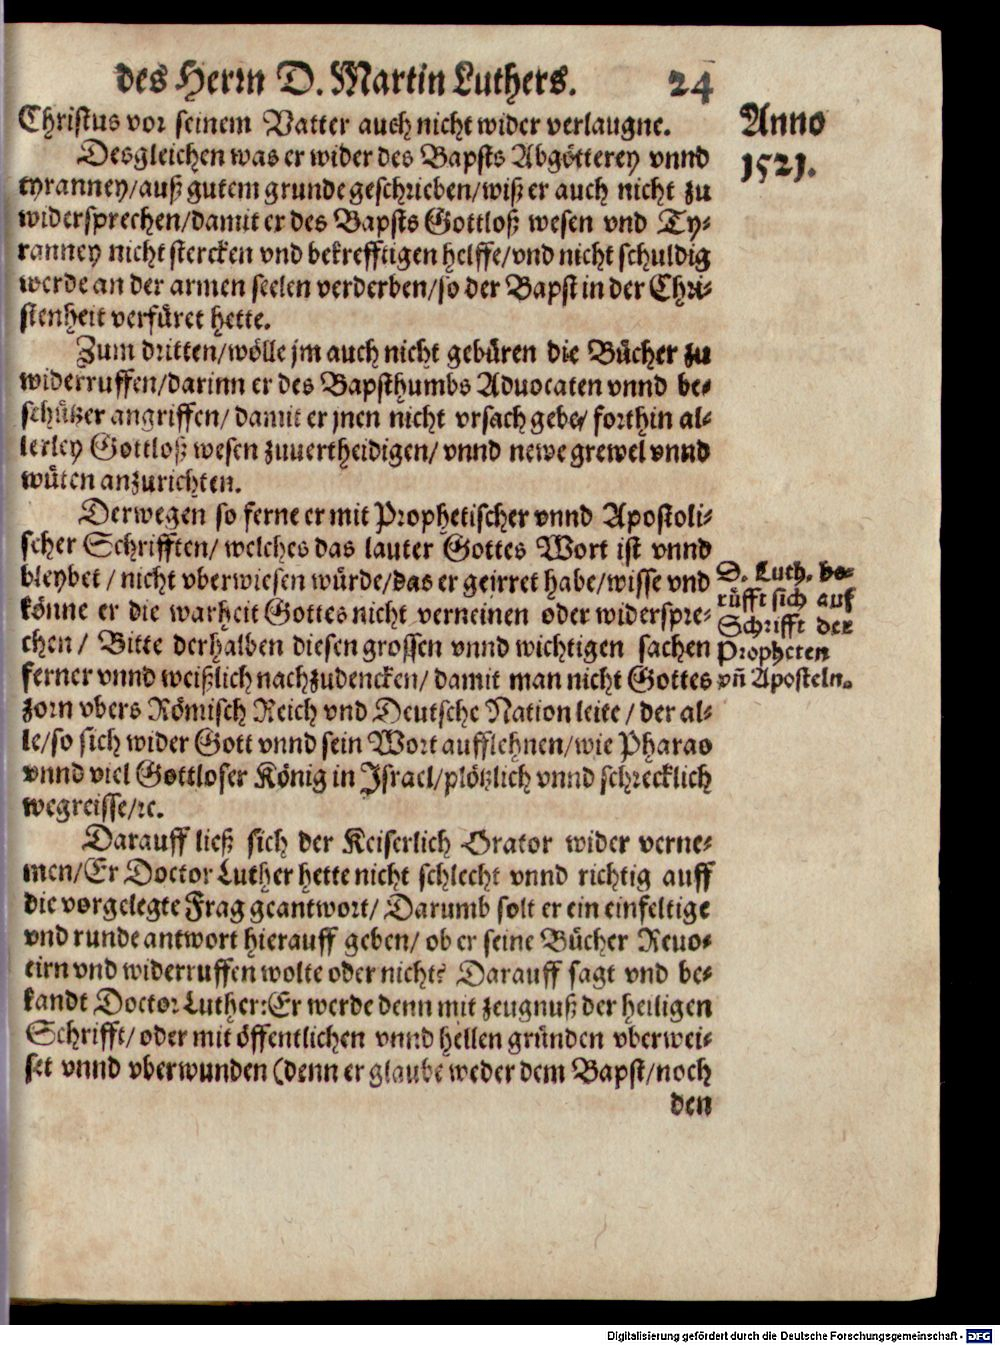 des Herrn D. Martin Luthers. 24
Christus vor seinem Vatter auch nicht wider verlaugne.
Anno
1521.
Desgleichen was er wider des Bapsts Abgötterey vnnd
tyranney/auß gutem grunde geschrieben/wiß er auch nicht zu
widersprechen/damit er des Bapsts Gottloß wesen vnd Ty-
ranney nicht stercken vnd bekrefftigen helffe/vnd nicht schuldig
werde an der armen seelen verderben/so der Bapst in der Chri-
stenheit verfüret hette.
Zum dritten/wölle jm auch nicht gebüren die Bücher zu
widerruffen/darinn er des Bapsthumbs Aduocaten vnnd be-
schützer angriffen/ damit er jnen nicht vrsach gebe/ forthin al-
lerley Gottloß wesen zuuertheidigen/ vnnd newe grewel vnnd
wüten anzurichten.
Derwegen so ferne er mit Prophetischer vnnd Apostoli-
scher Schrifften/ welches das lauter Gottes Wort ist vnnd
bleybet / nicht vberwiesen würde/das er geirret habe/wisse vnd
könne er die warheit Gottes nicht verneinen oder widerspre-
chen/ Bitte derhalben diesen grossen vnnd wichtigen sachen
ferner vnnd weißlich nachzudencken/ damit man nicht Gottes
zorn vbers Römisch Reich vnd Deutsche Nation leite / der al-
le/so sich wider Gott vnnd sein Wort aufflehnen/wie Pharao
vnnd viel Gottloser König in Israel/plötzlich vnnd schrecklich
wegreisse/ꝛc.
D. Luth. be-
rüfft sich auf
Schrifft der
Propheten
vñ Aposteln.
Darauff ließ sich der Keiserlich Orator wider verne-
men/Er Doctor Luther hette nicht schlecht vnnd richtig auff
die vorgelegte Frag geantwort/ Darumb solt er ein einfeltige
vnd runde antwort hierauff geben/ ob er seine Bücher Reuo-
cirn vnd widerruffen wolte oder nicht? Darauff sagt vnd be-
kandt Doctor Luther: Er werde denn mit zeugnuß der heiligen
Schrifft/ oder mit öffentlichen vnnd hellen gründen vberwei-
set vnnd vberwunden (denn er glaube weder dem Bapst/noch
den
Digitalisierung gefördert durch die Deutsche Forschungsgemeinschaft - DFG